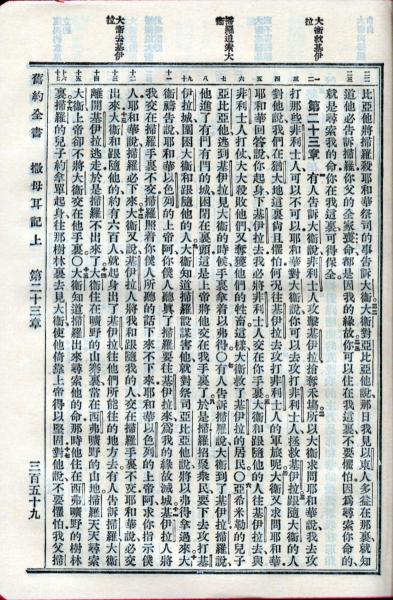 大衛救基伊拉
掃羅追索大衛
大衛去基伊拉
比亞他將掃羅殺耶和華祭司的事告訴大衛大衛對亞比亞他說那日我見以東人多益在那裏就知
道他必告訴掃羅你父的全家喪命都是因我的緣故你可以住在我這裏不要懼怕因爲尋索你命的
就是尋索我的命你在我這裏可得保全
第二十三章 有人告訴大衛說非利士人攻擊基伊拉搶奪禾場所以大衛求問耶和華說我去攻
打那些非利士人可以不可以耶和華對大衛說你可以去攻打非利士人拯救基伊拉跟隨大衛的人
對他說我們在猶大地這裏尚且懼怕何況往基伊拉去攻打非利士人的軍旅呢大衛又求問耶和華
耶和華回答說你起身下基伊拉去我必將非利士人交在你手裏大衛和跟隨他的人往基伊拉去與
非利士人打仗大大殺敗他們又奪獲他們的牲畜這樣大衛救了基伊拉的居民〇亞希米勒的兒子
亞比亞他逃到基伊拉見大衛的時候手裏拿着以弗得〇有人告訴掃羅說大衛到了基伊拉掃羅說
他進了有門有閂的城困閉在裏頭這是上帝將他交在我手裏了於是掃羅招聚衆民要下去攻打基
伊拉城圍困大衛和跟隨他的人大衛知道掃羅設謀害他就對祭司亞比亞他說將以弗得拿過來大
衛禱告說耶和華以色列的上帝阿你僕人聽真了掃羅要往基伊拉來爲我的緣故滅城基伊拉人將
我交在掃羅手裏不交掃羅照着你僕人所聽的話下來不下來耶和華以色列的上帝阿求你指示僕
人耶和華說掃羅必下來大衛又說基伊拉人將我和跟隨我的人交在掃羅手裏不交耶和華說必交
出來大衛和跟隨他的約有六百人就起身出了基伊拉往他們所能往的地方去有人告訴掃羅大衛
離開基伊拉逃走於是掃羅不出來了大衛住在曠野的山寨裏常在西弗曠野的山地掃羅天天尋索
大衛上帝卻不將大衛交在他手裏〇大衛知道掃羅出來尋索他的命那時他住在西弗曠野的樹林
裏掃羅的兒子約拿單起身往那樹林裏去見大衛使他倚靠上帝得以堅固對他說不要懼怕我父掃
舊約全書 撒母耳記上 第二十三章 三百五十九